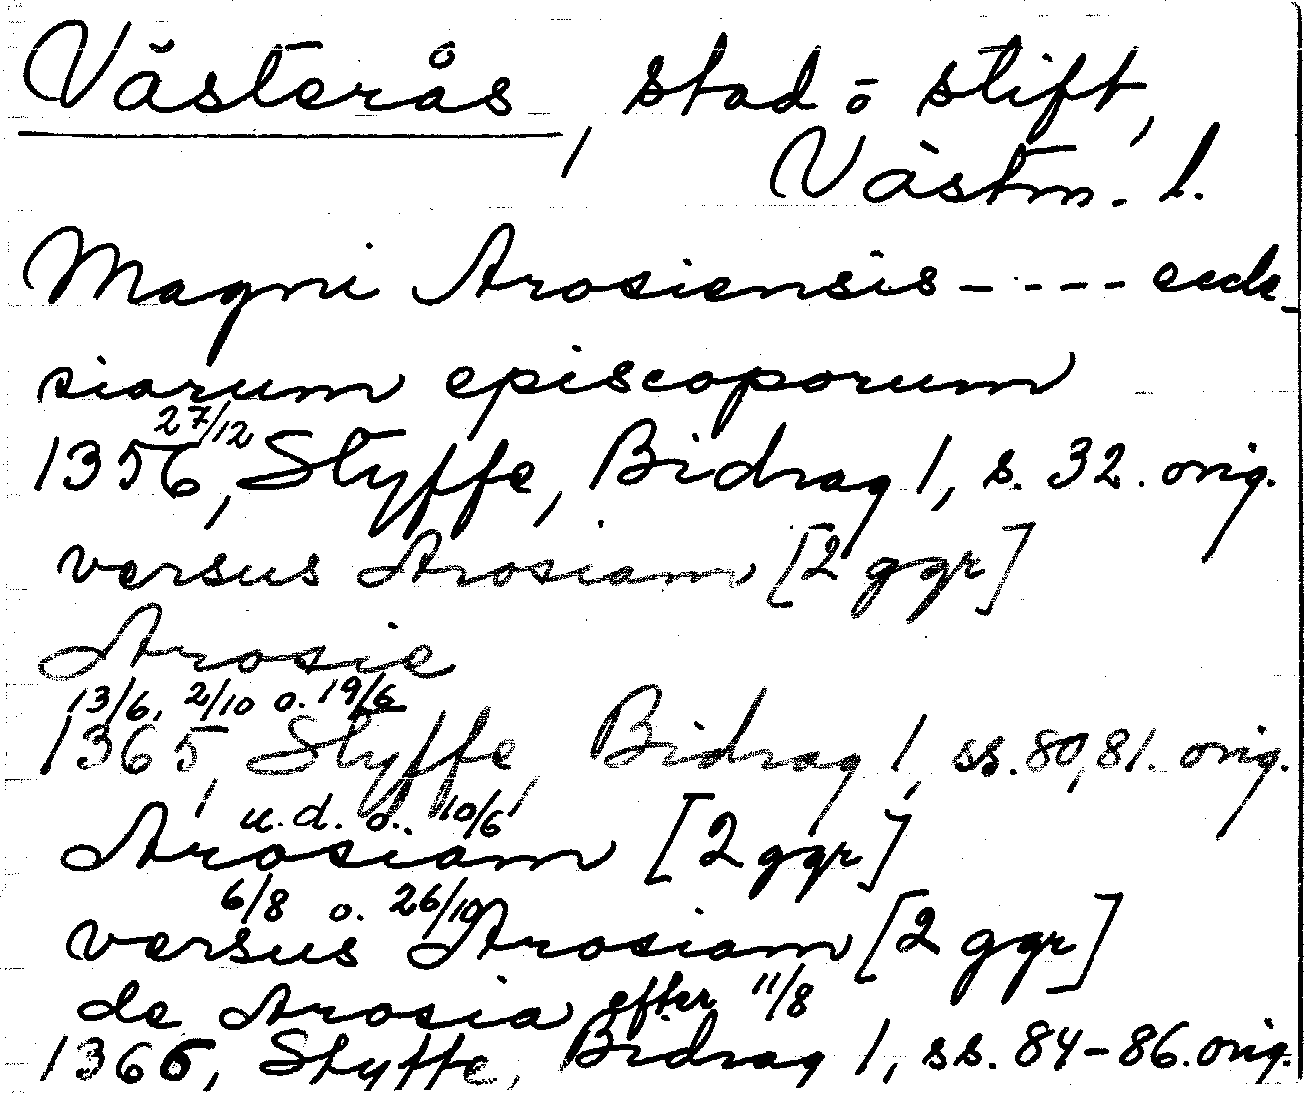 Västerås, stad o stift,
Västm. l.
Magni Arosiensis - - - - eccle-
siarum episcoporum
27/12
1356, Styffe, Bidrag 1, s. 32. orig.
versus Arosiam [2 ggr]
Arosie
13/6, 2/10 o. 19/6
1365, Styffe, Bidrag 1, ss. 80, 81. orig.
u.d. o. 10/6
Arosiam [2 ggr]
6/8 o. 26/10
versus Arosiam [2 ggr]
de Arosia efter 11/8
1366, Styffe, Bidrag 1, ss. 84-86. orig.